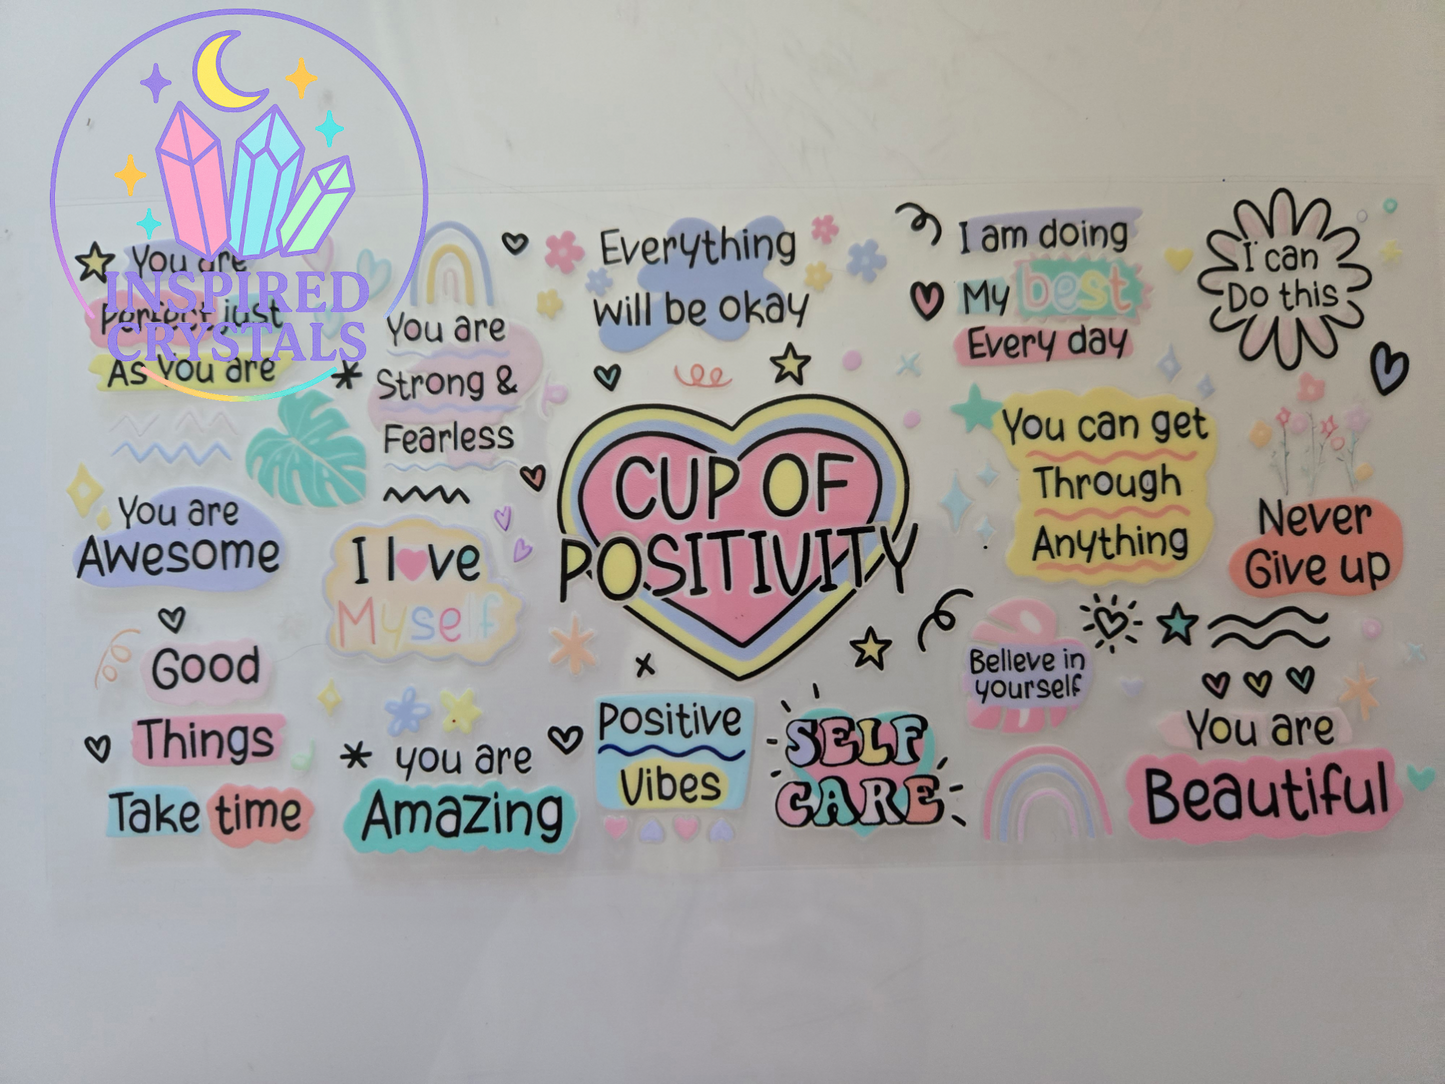 INSPIRED
CRYSTALS
You are
perfect just
As You are
You are
Strong &
Fearless
Everything
will be okay
I am doing
My best
Every day
I can
Do this
You are
Awesome
I love
Myself
CUP OF
POSITIVITY
You can get
Through
Anything
Never
Give up
Good
Things
Take time
you are
Amazing
Positive
Vibes
SELF
CARE
Believe in
yourself
You are
Beautiful